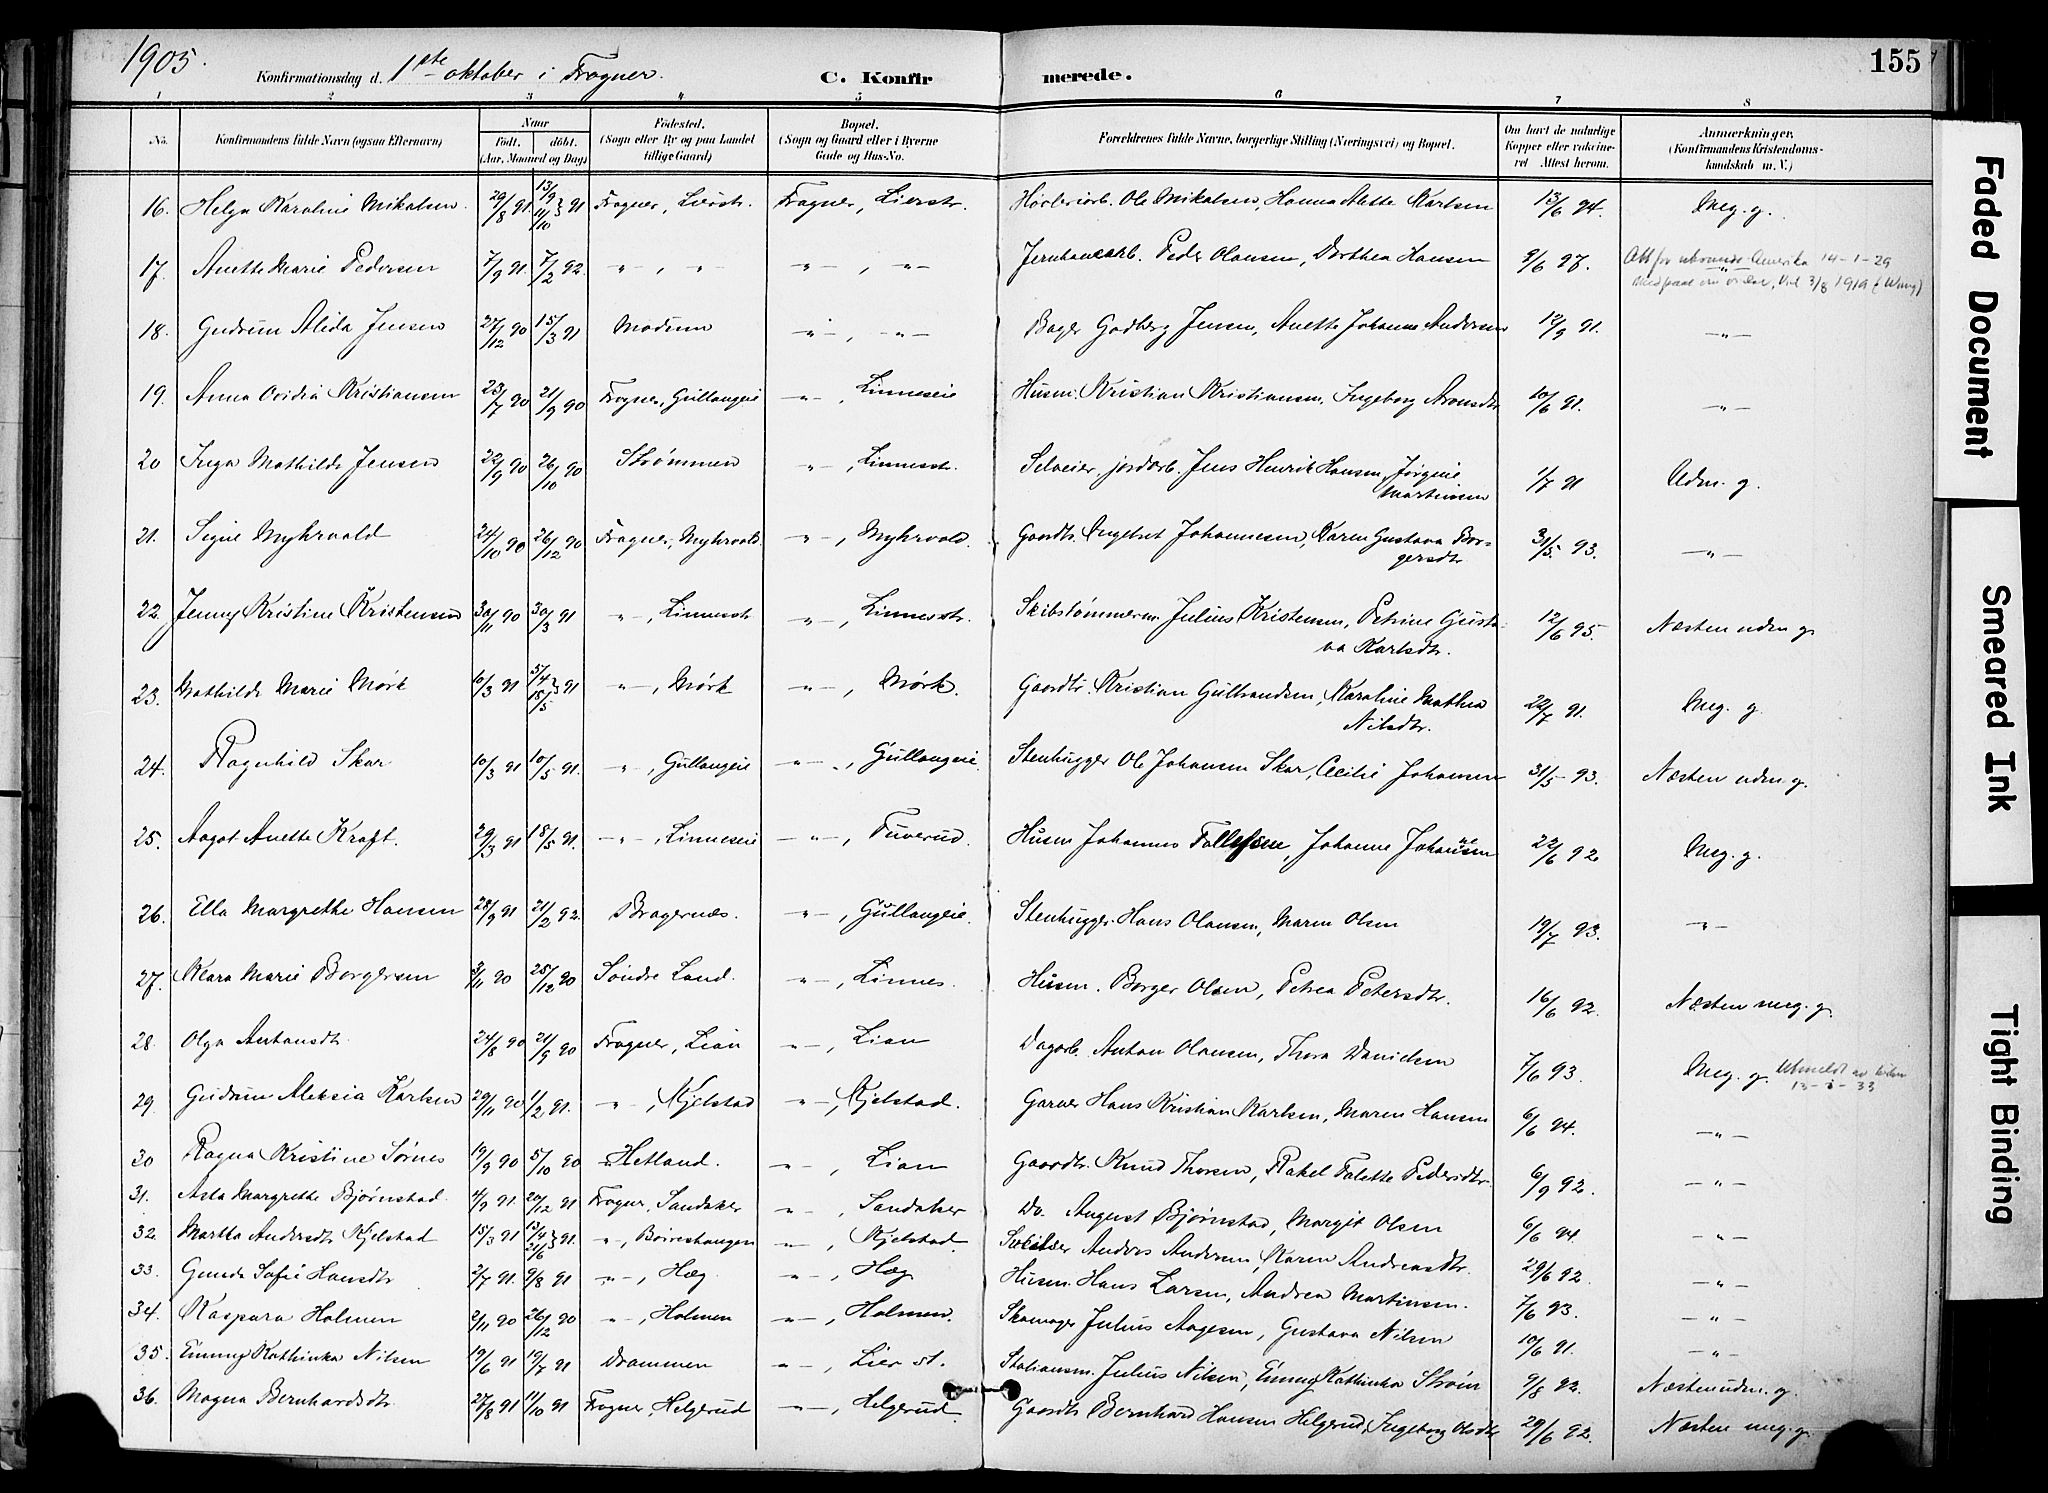 1905.
Konfirmationsdag d. 1ste oktober i Frogner. C. Konfirmerede. 155
1 2 3 4 5 6 7 8
No. Konfirmandens fulde Navn (ogsaa Efternavn) Naar Født, døbt. (Aar, Maaned og Dag) Fødested. (Sogn eller By og paa Landet tillige Gaard) Bopæl. (Sogn og Gaard eller i Byerne Gade og Hus-No. Forældrenes fulde Navne, borgerlige Stilling (Næringsvei) og Bopæl. Om havt de naturlige Kopper eller vaccineret Attest herom. Anmærkninger. (Konfirmandens Kristendomskundskab m. V.)
16. Helga Karoline Mikalsen. 29/8 91 13/9 11/10 } 91 Frogner, Lierstr. Frogner, Lierstr. Ole Mikalsen, Hanna Alette Karlsen 13/6 94. Meg. g.
17. Anette Marie Pedersen 7/9 91 7/2 92. -"-, -"- -"-, -"- Peder Olausen, Dorthea Hansen 9/6 97. -"- Amerika 14-1-29
18. Gudrun Alida Jensen 27/12 90 15/3 91 Modum -"-, -"- Bager Godberg Jensen, Anette Johanne Andersen 12/9 91. -"-
19. Anna Ovidia Kristiansen 23/7 90 21/9 90 Frogner, Gullaugeie -"-, Linneseie Husm. Kristian Kristiansen, Ingeborg Aronsdtr 10/6 91. -"-
20 Inga Mathilde Jensen 22/9 90 26/10 90 Strømmen -"-, Linnesstr. Selveier, jordarb. Jens Henrik Hansen, Jørgine Martinsen 1/7 91 Udm. g.
21. Signe Myhrvold 24/10 90 26/12 90 Frogner, Myhrvold. -"-, Myhrvold. Gaardbr. Engebret Johannesen, Karen Gustava Borgersdtr 31/5 93. -"-
22. Jenny Kristine Kristensen 30/11 90 30/3 91 -"-, Linnesstr -"-, Linnesstr. Skibstømmerm. Julius Kristensen, Petrine Gustava Karlsdtr. 12/6 95. Næsten udm. g.
23. Mathilde Marie Mörk 10/3 91 5/4 18/5 } 91 -"-, Mörk -"-, Mörk. Gaardbr. Kristian Gulbrandsen, Karoline Mathea Nilsdtr. 22/7 91. Meg. g.
24. Ragnhild Skar 10/3 91 10/5 91. -"-, Gullaugeie -"-, Gullaugeie. Stenhugger Ole Johansen Skar, Cecilie Johansen 31/5 93. Næsten udm. g.
25. Aagot Anette Kraft. 29/3 91 18/5 91. -"-, Linneseie -"-, Tuverud. Husm Johannes Tollefsen, Johanne 22/6 92 Meg. g.
26. Ella Margrethe Hansen 28/9 91 21/2 92. Bragernæs. -"-, Gullaugeie. Stenhugger Hans Olausen, Maren Olsen 19/7 93. -"-
27. Klara Marie Borgersen 3/11 90 25/12 90 Søndre Land. -"-, Linnes. Husm. Borger Olsen, Petrea Petersdtr. 16/6 92. Næsten meg. g.
28. Olga Antonsdtr. 24/8 90 21/9 90 Frogner, Lian -"-, Lian Dagarb. Anton Olausen, Thora Danielsen 7/6 93. Meg. g. Utmeldt av kirken
29. Gudrun Aleksia Karlsen 29/11 90 1/2 91. -"-, Kjelstad -"-, Kjelstad. Garver Hans Kristian Karlsen, Maren Hansen 6/6 94. -"-
30 Ragna Kristine Sørnes 19/9 90 5/10 90 Hetland. -"-, Lian Gaardbr. Knud Thorsen, Rakel Talette Pedersdtr. 6/9 92. -"-
31. Asta Margrethe Bjørnstad. 4/9 91. 20/12 91 Frogner, Sandaker -"-, Sandaker Do. August Bjørnstad, Margit Olsen 6/6 94. -"-
32. Martha Andersdtr Kjelstad 15/3 91 13/4 21/6 } 91. -"-, -"-, Kjelstad. Anders Andersen, Karen Andreasdtr. 29/6 92. -"-
33. Gunda Sofie Hansdtr 2/7 91. 9/8 91 -"-, Hæg -"-, Hæg Husm. Hans Larsen, Andrea Martinsen. 7/6 93. -"-
34. Kaspara Holmen 2/11 90 26/12 90 -"-, Holmen -"-, Holmen. Skomager Julius Aagesen, Gustava Nilsen 10/6 91. -"-
35. Emmy Kathinka Nilsen 19/6 91 19/7 91 Drammen -"-, Lier st. Stationsm. Julius Nilsen, Emmy Kathinka Strøm 9/8 92. Næsten udm. g.
36. Magna Bernhardsdtr. 27/8 91 11/10 91 Frogner, Helgerud -"-, Helgerud. Gaardbr. Bernhard Hansen Helgerud, Ingeborg Olsdtr 29/6 92. Næsten meg. g.
Faded Document
Smeared Ink
Tight Binding